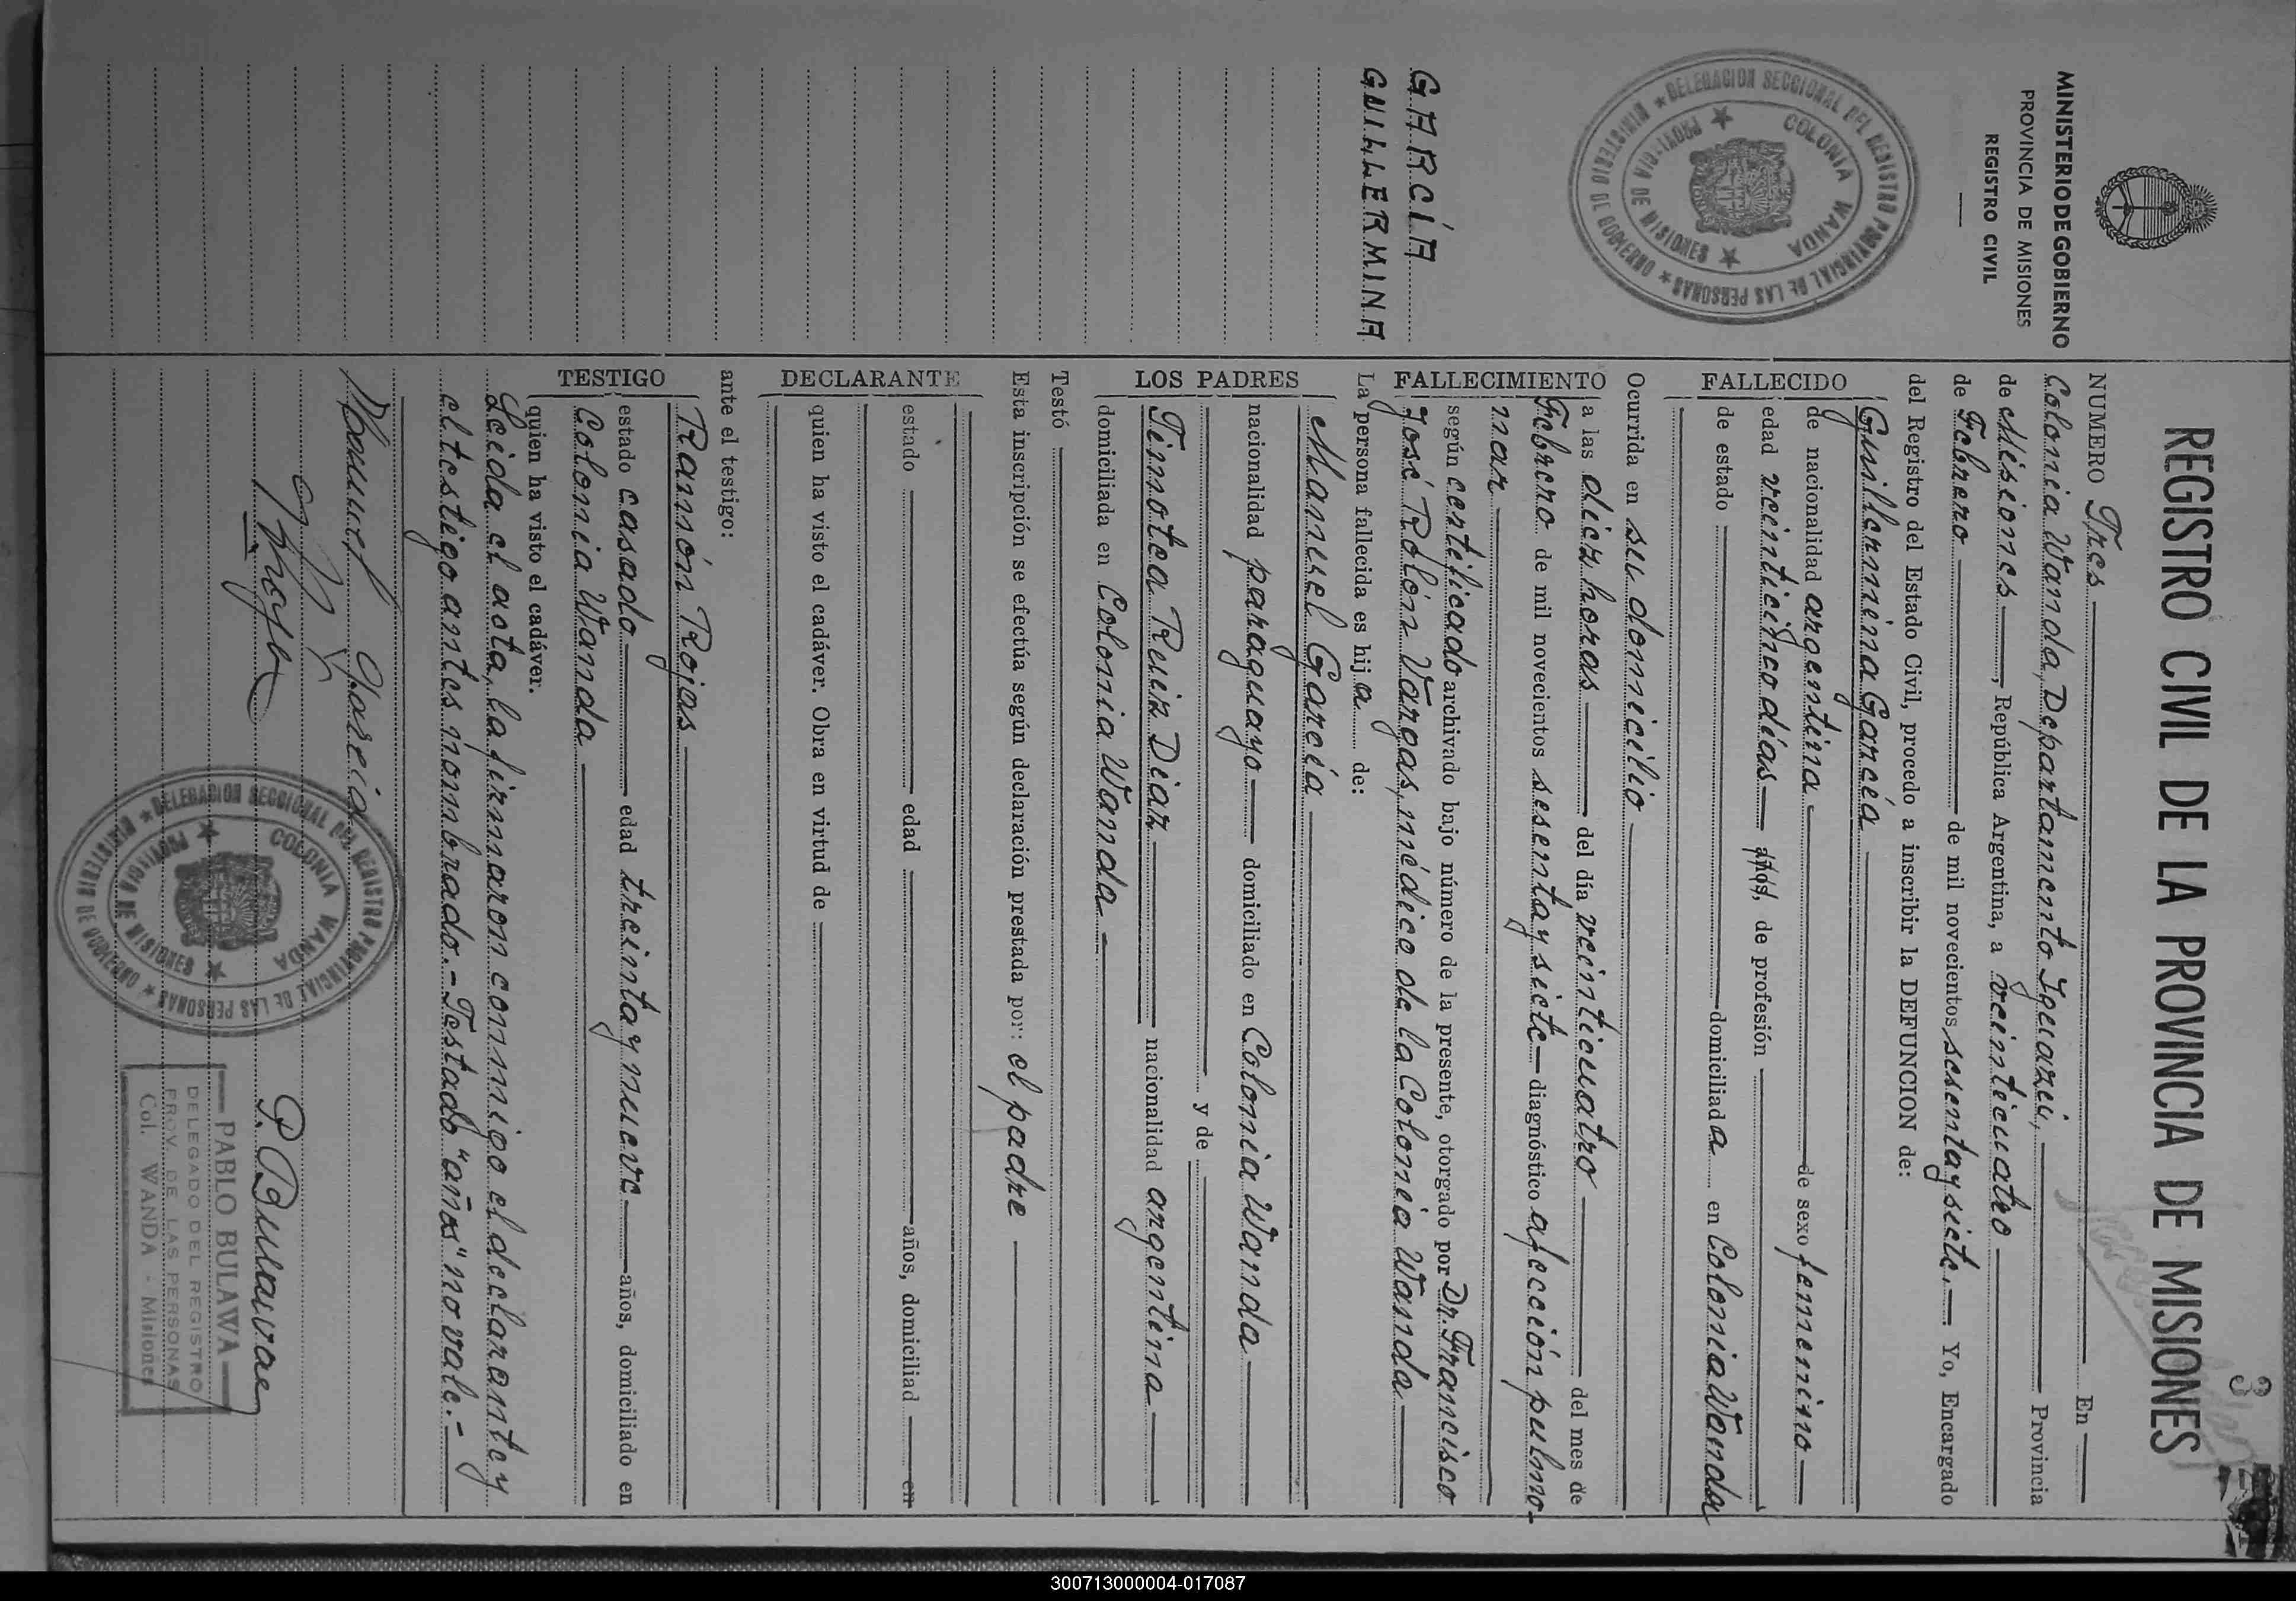 3
REGISTRO CIVIL DE LA PROVINCIA DE MISIONES
MINISTERIO DE GOBIERNO
PROVINCIA DE MISIONES
REGISTRO CIVIL
MINISTERIO DE GOBIERNO ★ DELEGACION SECCIONAL DEL REGISTRO PROVINCIAL DE LAS PERSONAS ★
COLONIA WANDA
★ PROVINCIA DE MISIONES ★
GARCÍA
GUILLERMINA
NUMERO Tres En
Colonia Wanda, Departamento Iguazú, Provincia
de Misiones, República Argentina, a veinticuatro
de Febrero de mil novecientos sesenta y siete. Yo, Encargado
del Registro del Estado Civil, procedo a inscribir la DEFUNCION de:
FALLECIDO
Guillermina García
de nacionalidad argentina de sexo femenino
edad veinticinco días años, de profesión
de estado domiciliada en Colonia Wanda
Ocurrida en su domicilio
FALLECIMIENTO
a las diez horas del día veinticuatro del mes de
Febrero de mil novecientos sesenta y siete diagnóstico afección pulmo-
nar
según certificado archivado bajo número de la presente, otorgado por Dr. Francisco
José Rolón Vargas, médico de la Colonia Wanda
La persona fallecida es hija de:
LOS PADRES
Manuel García
nacionalidad paraguayo domiciliado en Colonia Wanda
y de
Timotea Ruiz Diaz nacionalidad argentina
domiciliada en Colonia Wanda
Testó
Esta inscripción se efectúa según declaración prestada por: el padre
DECLARANTE
estado edad años, domiciliad en
quien ha visto el cadáver. Obra en virtud de
ante el testigo:
TESTIGO
Ramón Rojas
estado casado edad treinta y nueve años, domiciliado en
Colonia Wanda
quien ha visto el cadáver.
Leida el acta, la firmaron conmigo el declarante y
el testigo antes nombrado.- Testado "años" no vale.-
Manuel Garcia
P. Bulawa
MINISTERIO DE GOBIERNO ★ DELEGACION SECCIONAL DEL REGISTRO PROVINCIAL DE LAS PERSONAS ★
COLONIA WANDA
★ PROVINCIA DE MISIONES ★
PABLO BULAWA
DELEGADO DEL REGISTRO
PROV. DE LAS PERSONAS
Col. WANDA - Misiones
300713000004-017087